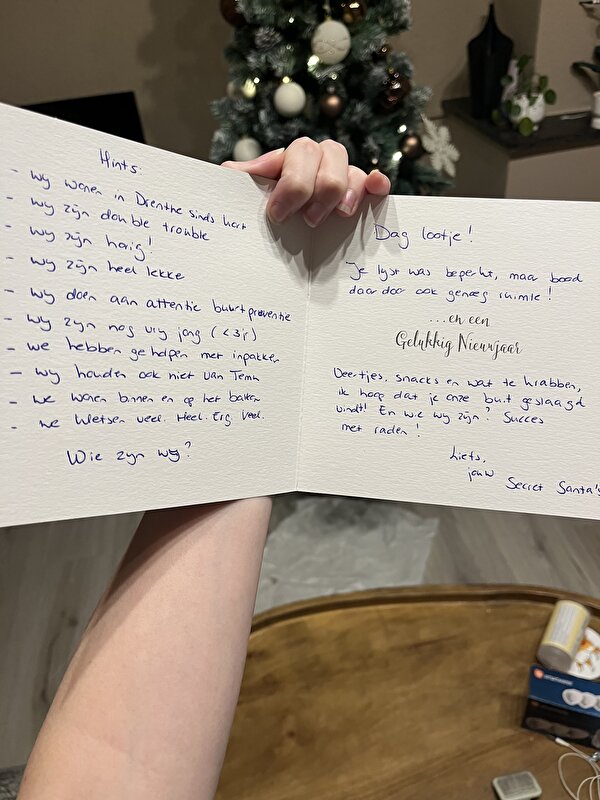 Hints:
- wij wonen in Drenthe sinds kort
- wij zijn double trouble
- wij zijn harig!
- wij zijn heel lekke
- wij doen aan attentie buurtpreventie
- wij zijn nog vrij jong (<3jr)
- we hebben geholpen met inpakken
- wij houden ook niet van Temu
- we wonen binnen en op het balkon
- we kletsen veel. Heel. Erg. Veel.
Wie zijn wij?
Dag lootje!
Je lijst was beperkt, maar bood
daardoor ook genoeg ruimte!
...en een
Gelukkig Nieuwjaar
Veertjes, snacks en wat te krabben,
ik hoop dat je onze buit geslaagd
vindt! En wie wij zijn? Succes
met raden!
Liefs,
jouw Secret Santa's